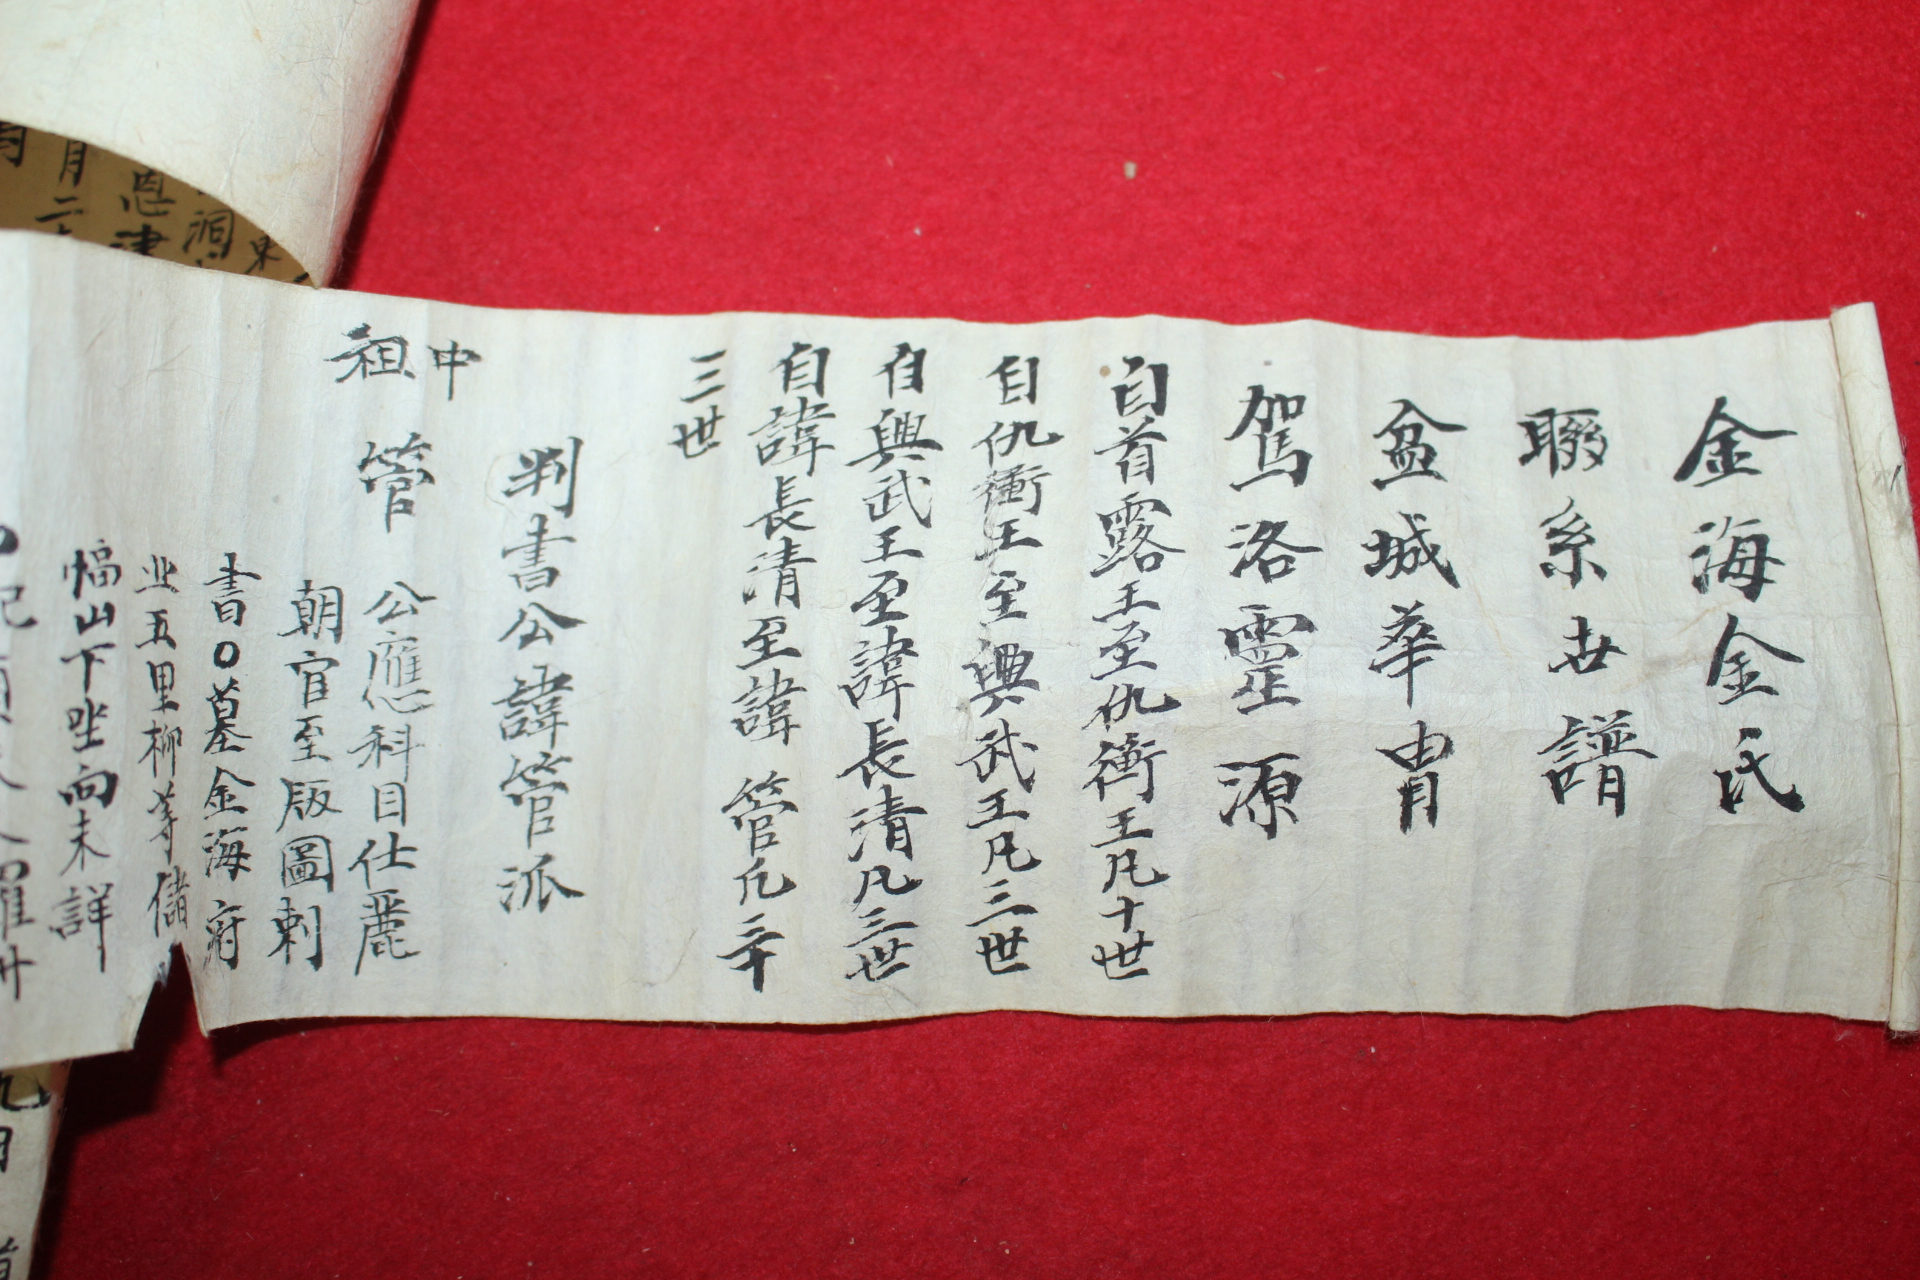 金海金氏
聯系世譜
盆城華胄
駕洛靈源
自首露王至仇衝王凡十世
自仇衝王至興武王凡三世
自興武王至諱長清凡三世
自諱長清至諱管凡三十
三世
判書公諱管派
中
祖
管
公應科目仕麗
朝官至版圖判
書○墓金海府
北五里柳等儲
幅山下坐向未詳
東
洞
恩津
月二
九月